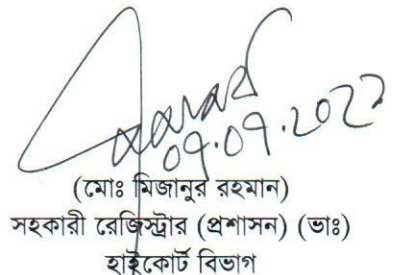 ০৭.০৭.২০২২
(মোঃ মিজানুর রহমান)
সহকারী রেজিস্ট্রার (প্রশাসন) (ভাঃ)
হাইকোর্ট বিভাগ